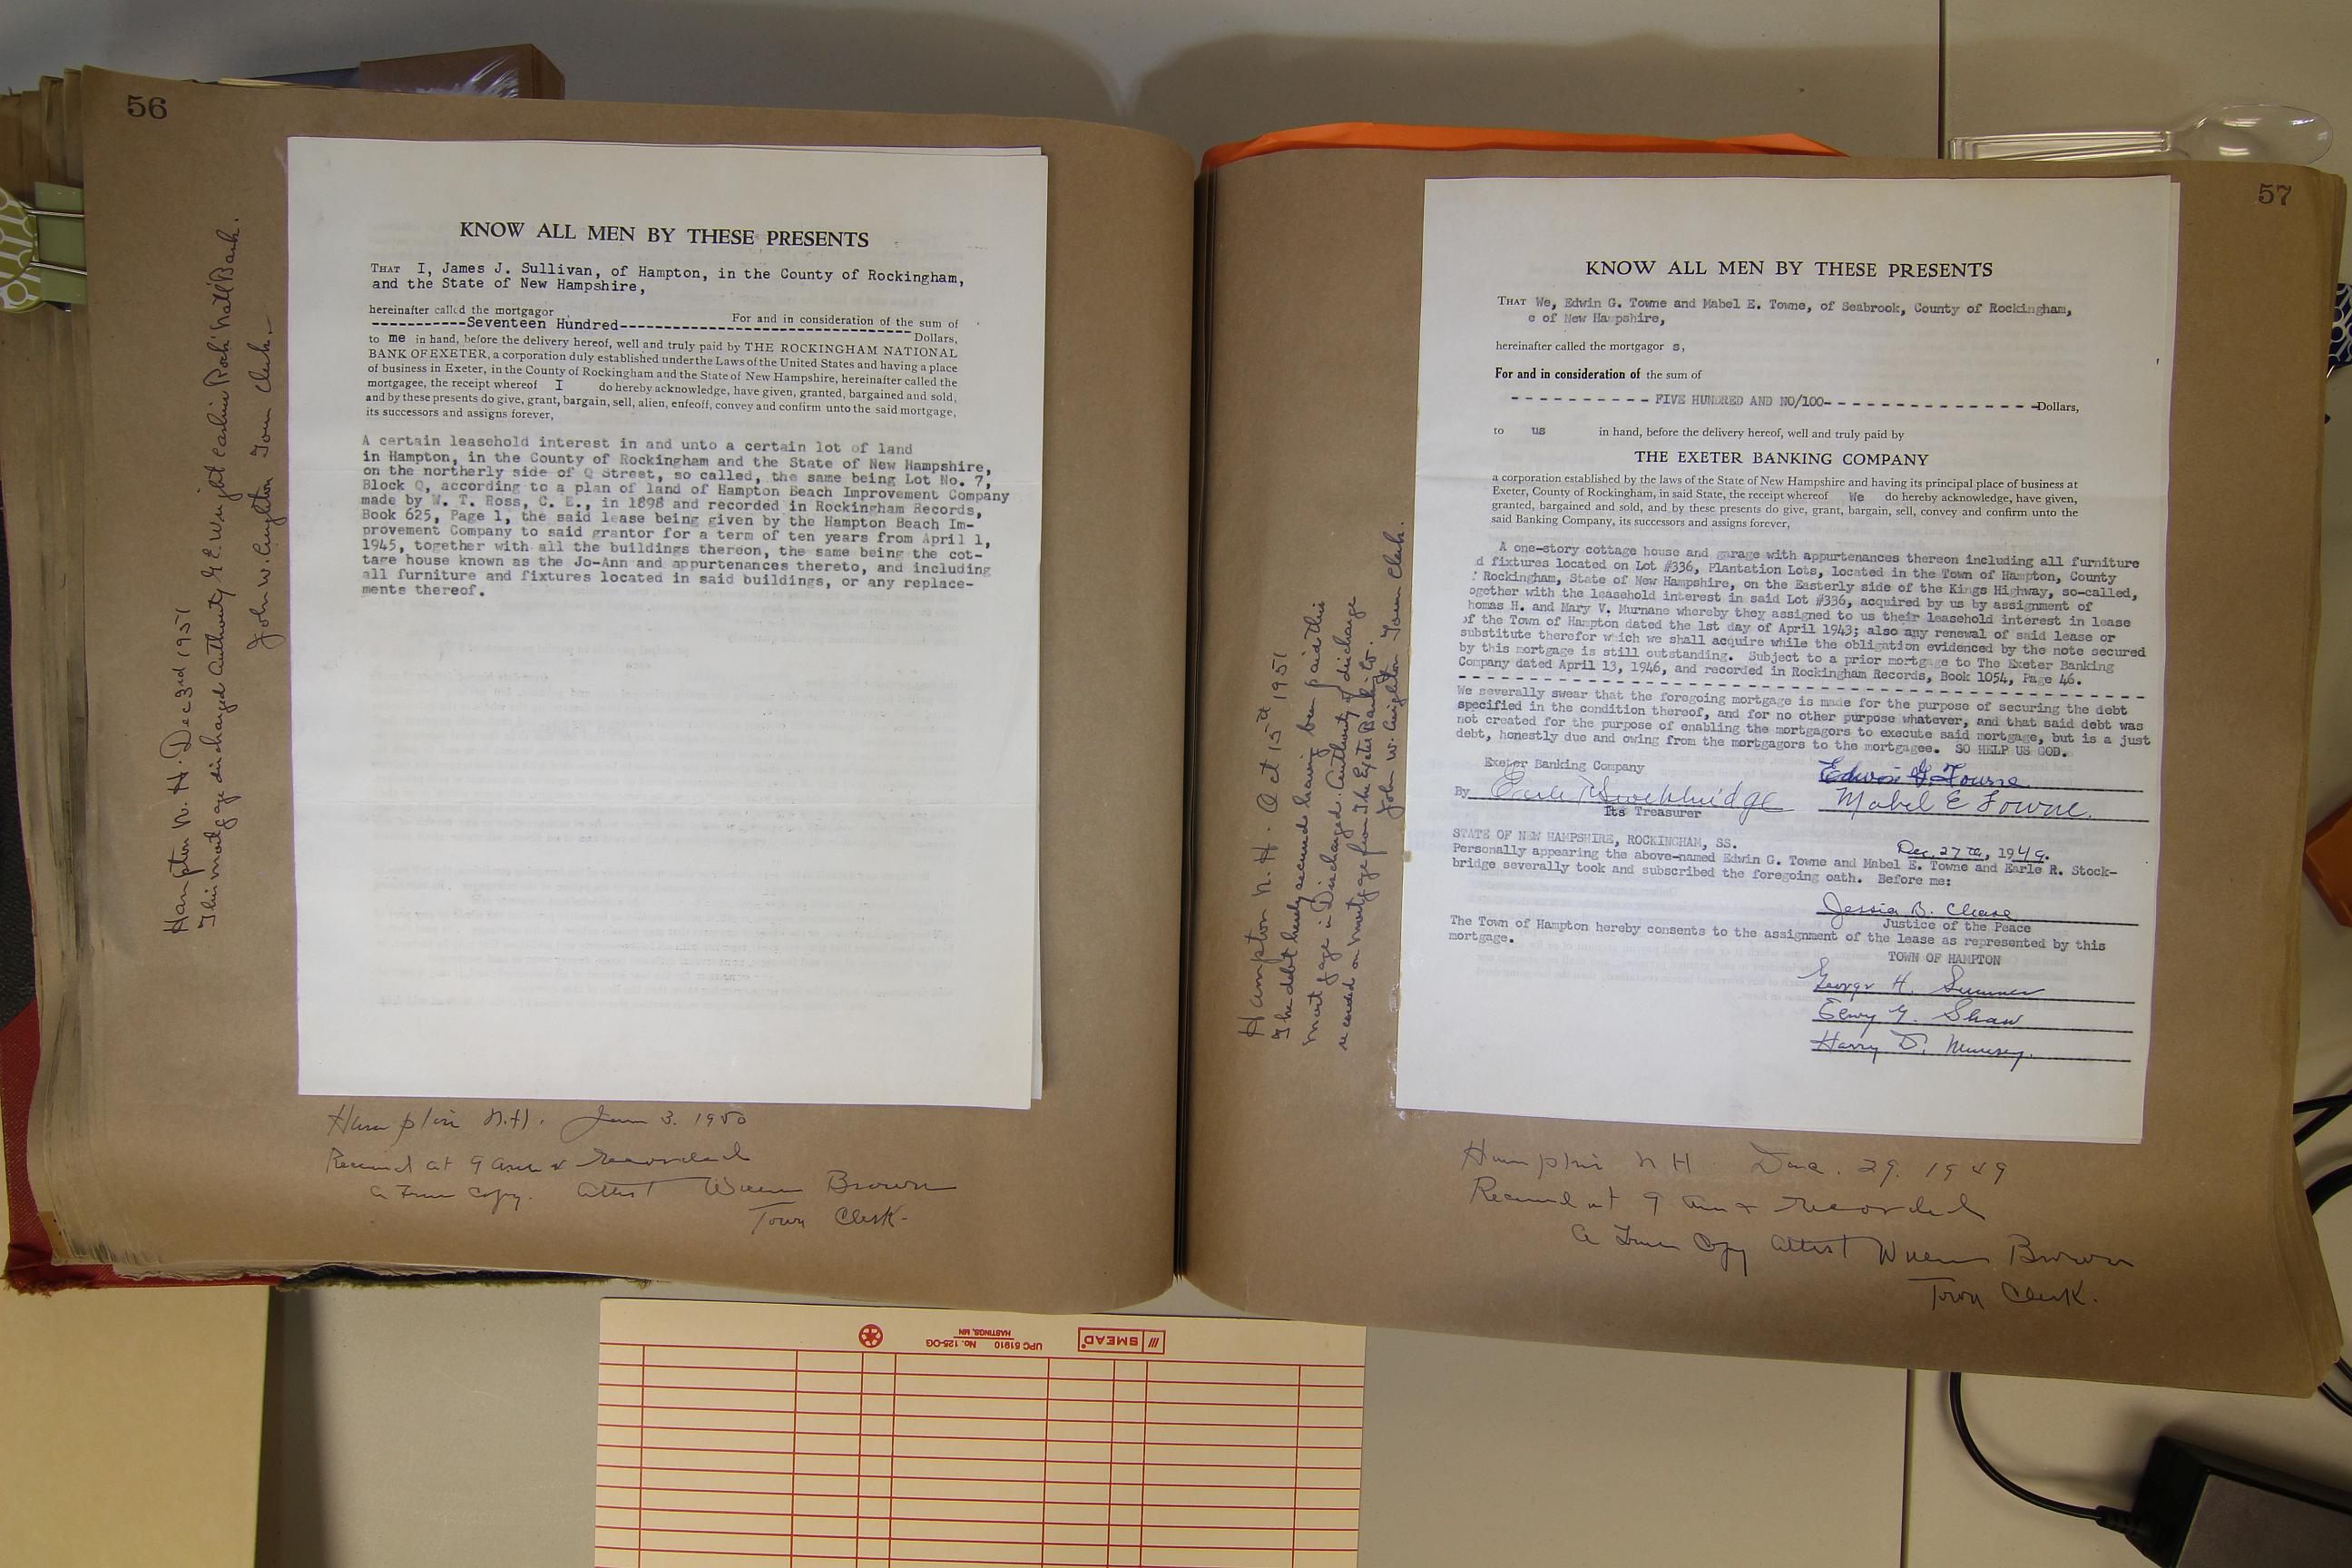 56
KNOW ALL MEN BY THESE PRESENTS
THAT I, James J. Sullivan, of Hampton, in the County of Rockingham,
and the State of New Hampshire,
hereinafter called the mortgagor For and in consideration of the sum of
-----------Seventeen Hundred----------------------------------- Dollars,
to me in hand, before the delivery hereof, well and truly paid by THE ROCKINGHAM NATIONAL
BANK OF EXETER, a corporation duly established under the Laws of the United States and having a place
of business in Exeter, in the County of Rockingham and the State of New Hampshire, hereinafter called the
mortgagee, the receipt whereof I do hereby acknowledge, have given, granted, bargained and sold,
and by these presents do give, grant, bargain, sell, alien, enfeoff, convey and confirm unto the said mortgage,
its successors and assigns forever,
A certain leasehold interest in and unto a certain lot of land
in Hampton, in the County of Rockingham and the State of New Hampshire,
on the northerly side of Q Street, so called, the same being Lot No. 7,
Block Q, according to a plan of land of Hampton Beach Improvement Company
made by W. T. Ross, C. E., in 1898 and recorded in Rockingham Records,
Book 625, Page 1, the said lease being given by the Hampton Beach Im-
provement Company to said grantor for a term of ten years from April 1,
1945, together with all the buildings thereon, the same being the cot-
tage house known as the Jo-Ann and appurtenances thereto, and including
all furniture and fixtures located in said buildings, or any replace-
ments thereof.
Hampton N. H. Dec 3rd 1951
This mortgage discharged Authority G. E. Wright cashier Rock' Nat'l Bank.
John W. Creighton Town Clerk.
Hampton N.H. Jan 3. 1950
Received at 9 am & recorded
a True Copy. Attest William Brown
Town Clerk.
57
KNOW ALL MEN BY THESE PRESENTS
THAT We, Edwin G. Towne and Mabel E. Towne, of Seabrook, County of Rockingham,
e of New Hampshire,
hereinafter called the mortgagor s,
For and in consideration of the sum of
- - - - - - - - - - FIVE HUNDRED AND NO/100- - - - - - - - - - - - - - - -Dollars,
to us in hand, before the delivery hereof, well and truly paid by
THE EXETER BANKING COMPANY
a corporation established by the laws of the State of New Hampshire and having its principal place of business at
Exeter, County of Rockingham, in said State, the receipt whereof We do hereby acknowledge, have given,
granted, bargained and sold, and by these presents do give, grant, bargain, sell, convey and confirm unto the
said Banking Company, its successors and assigns forever,
A one-story cottage house and garage with appurtenances thereon including all furniture
d fixtures located on Lot #336, Plantation Lots, located in the Town of Hampton, County
Rockingham, State of New Hampshire, on the Easterly side of the Kings Highway, so-called,
ogether with the leasehold interest in said Lot #336, acquired by us by assignment of
homas H. and Mary V. Murnane whereby they assigned to us their leasehold interest in lease
of the Town of Hampton dated the 1st day of April 1943; also any renewal of said lease or
substitute therefor which we shall acquire while the obligation evidenced by the note secured
by this mortgage is still outstanding. Subject to a prior mortgage to The Exeter Banking
Company dated April 13, 1946, and recorded in Rockingham Records, Book 1054, Page 46.
We severally swear that the foregoing mortgage is made for the purpose of securing the debt
specified in the condition thereof, and for no other purpose whatever, and that said debt was
not created for the purpose of enabling the mortgagors to execute said mortgage, but is a just
debt, honestly due and owing from the mortgagors to the mortgagee. SO HELP US GOD.
Exeter Banking Company Edwin G. Towne
By Earle R Stockbridge Mabel E Towne.
Its Treasurer
STATE OF NEW HAMPSHIRE, ROCKINGHAM, SS. Dec. 27th, 1949.
Personally appearing the above-named Edwin G. Towne and Mabel E. Towne and Earle R. Stock-
bridge severally took and subscribed the foregoing oath. Before me:
Jessia B. Chase
Justice of the Peace
The Town of Hampton hereby consents to the assignment of the lease as represented by this
mortgage.
TOWN OF HAMPTON
George H. Sumner
Elwy G. Shaw
Harry D. Munsey.
Hampton N. H. Oct 15th 1951
The debt hereby secured having been paid this
mortgage is Discharged. Authority of discharge
recorded on mortgage from The Exeter Bank'g Co.
John W. Creighton Town Clerk.
Hampton N H Dec. 29. 1949
Received at 9 am & recorded
a True Copy Attest William Brown
Town Clerk.
SMEAD
UPC 51910 No. 125-OG
HASTINGS, MN